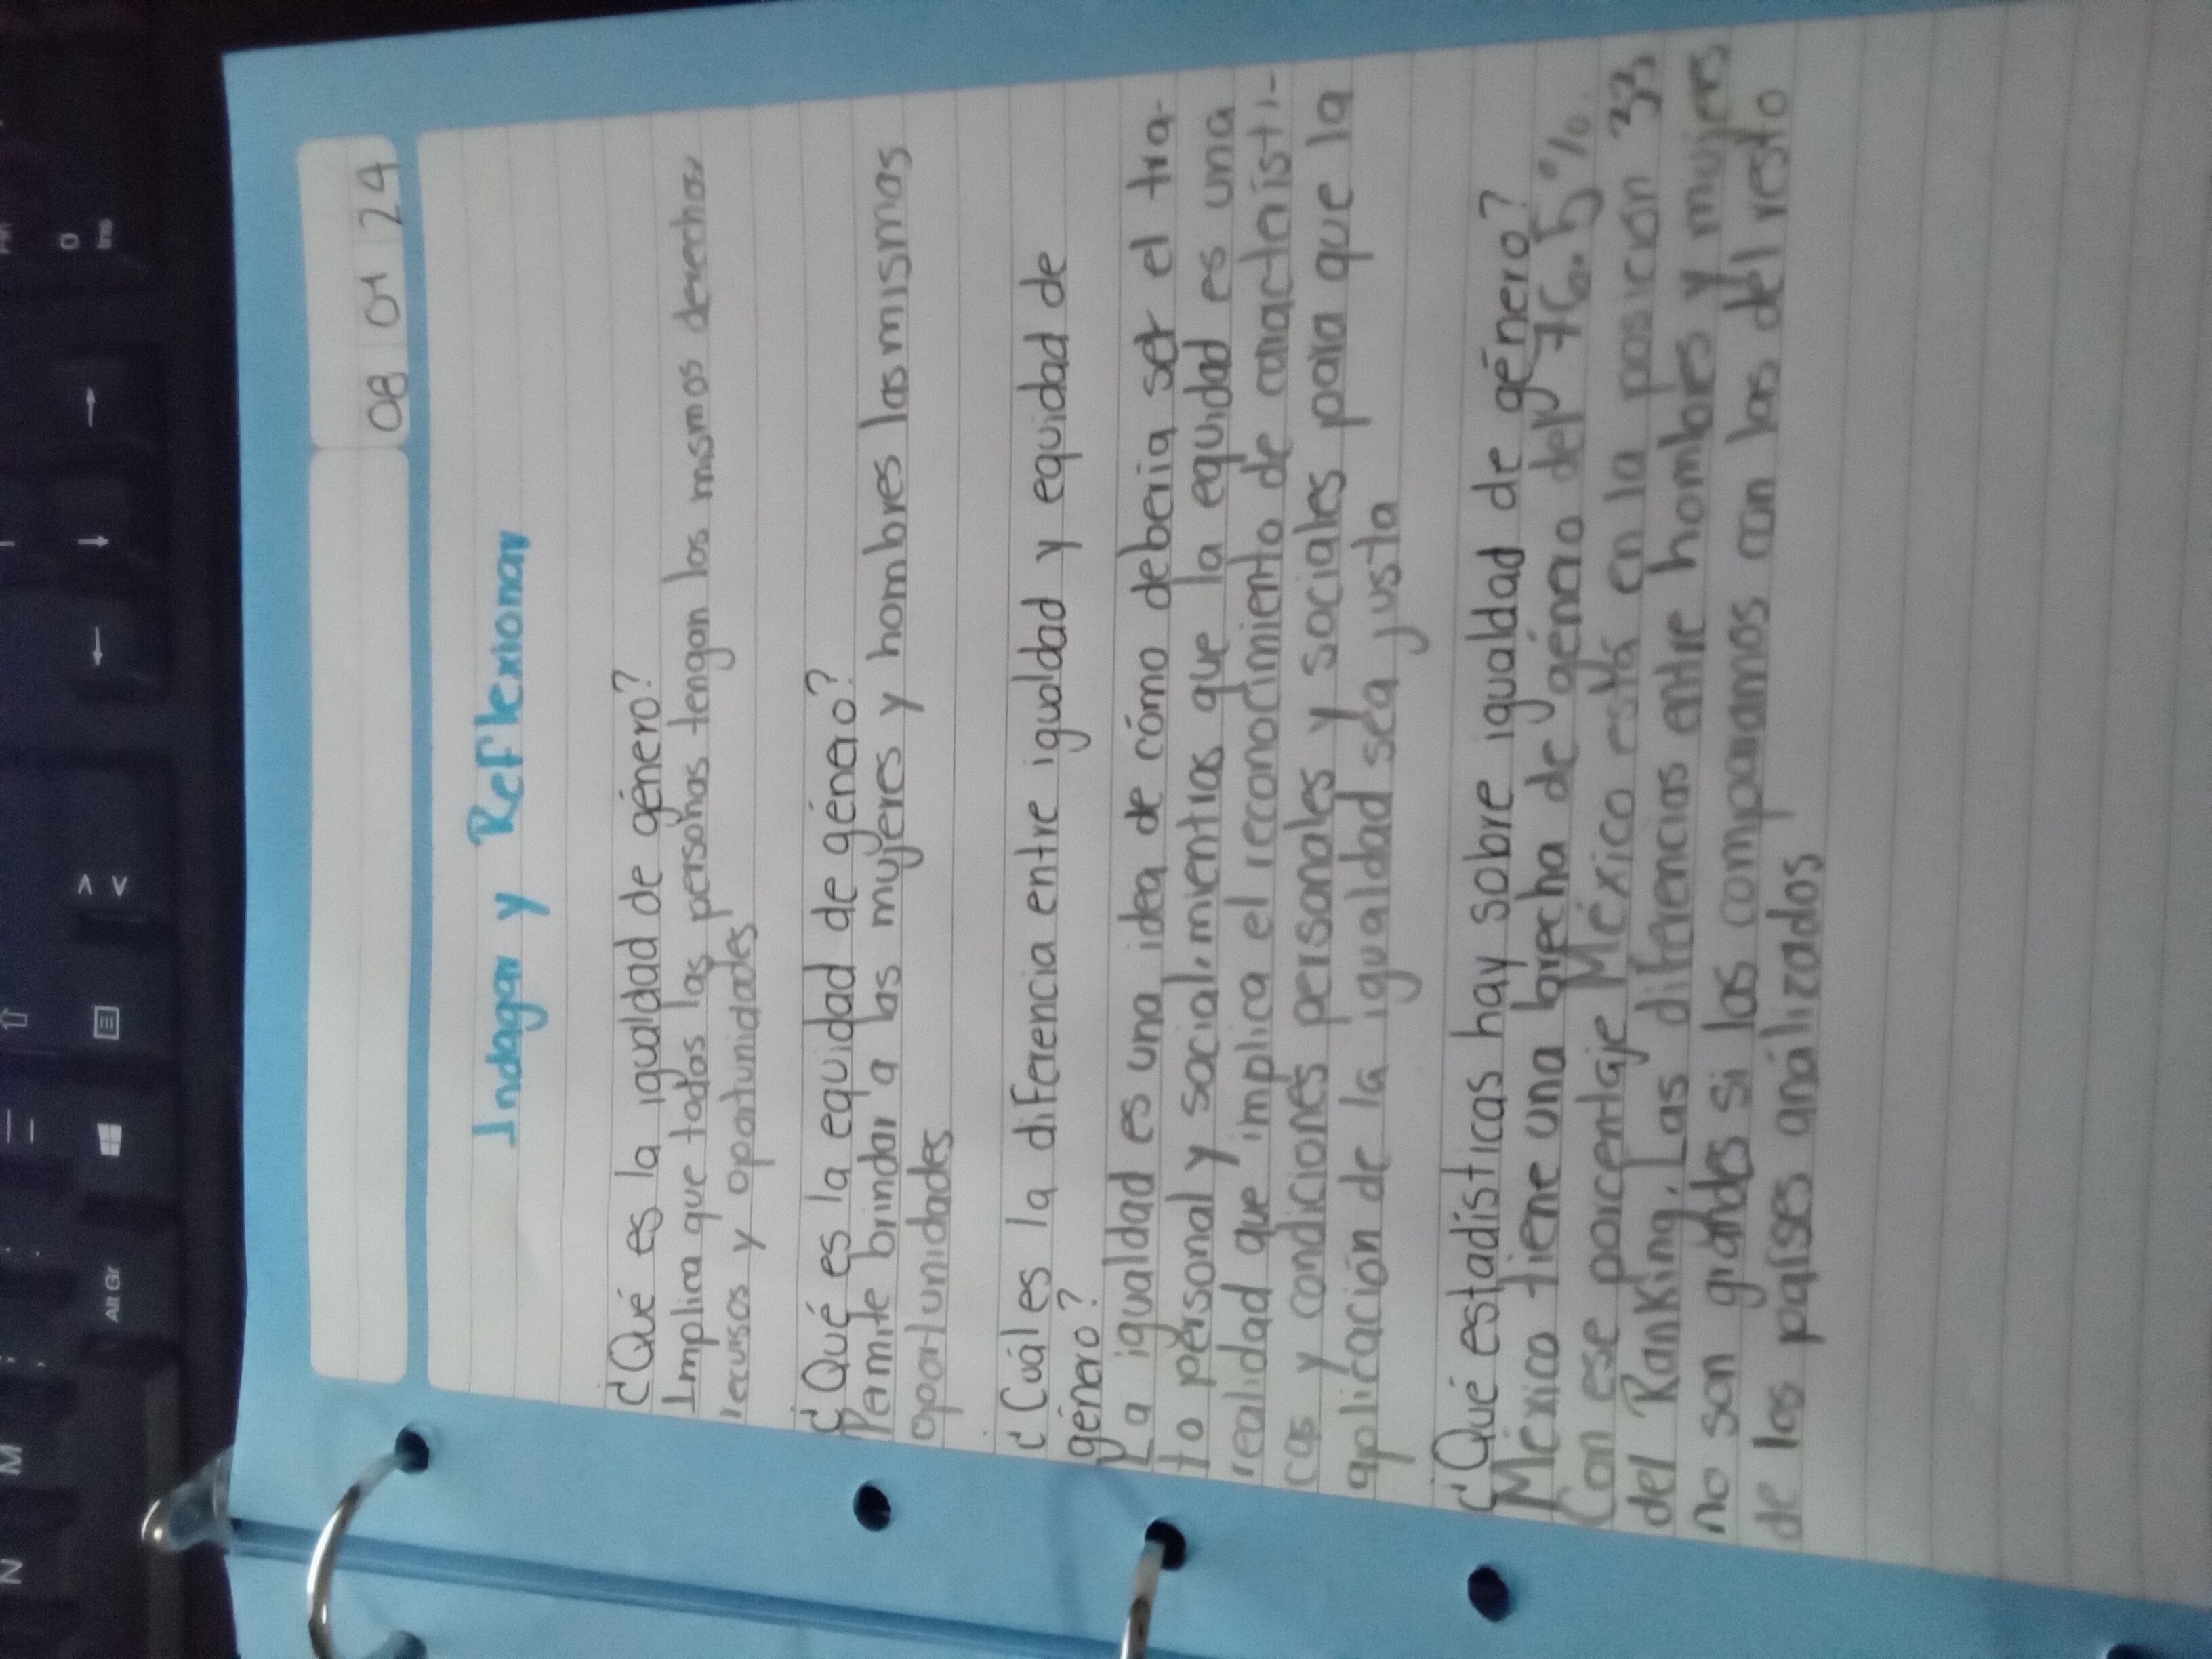 08 01 24
Indagar y Reflexionar
¿Qué es la igualdad de género?
Implica que todas las personas tengan los mismos derechos
recursos y oportunidades
¿Qué es la equidad de género?
Permite brindar a las mujeres y hombres las mismas
oportunidades
¿Cuál es la diferencia entre igualdad y equidad de
género?
La igualdad es una idea de cómo deberia ser el tra-
to personal y social, mientras que la equidad es una
realidad que implica el reconocimiento de caracteristi-
cas y condiciones personales y sociales para que la
aplicación de la igualdad sea justa
¿Qué estadísticas hay sobre igualdad de género?
México tiene una brecha de género del 76.5%.
Con ese porcentaje México está en la posición 33
del Ranking. Las diferencias entre hombres y mujeres
no son grandes si las comparamos con las del resto
de los países análizados
Alt Gr
N
M
Ins
0
>
<